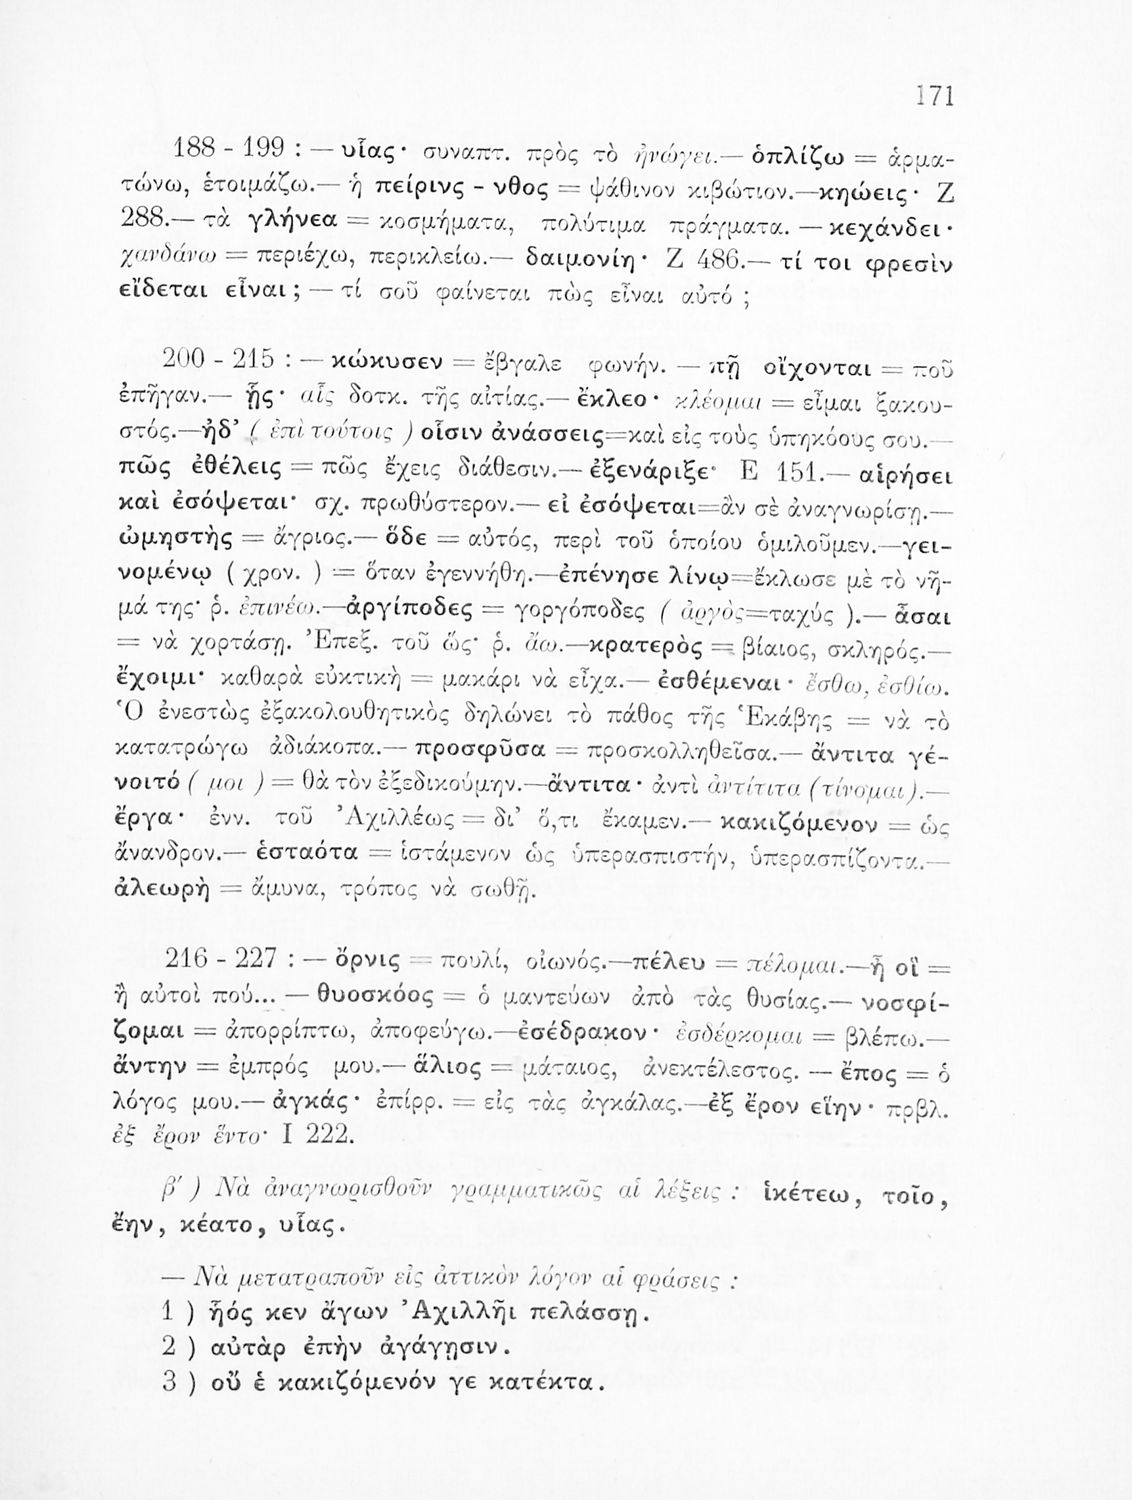 171
188 - 199 : — υἷας· συναπτ. πρὸς τὸ ἠνώγει.— ὁπλίζω = ἁρμα-
τώνω, ἑτοιμάζω.— ἡ πείρινς - νθος = ψάθινον κιβώτιον.—κηώεις· Ζ
288.— τὰ γλήνεα = κοσμήματα, πολύτιμα πράγματα. — κεχάνδει·
χανδάνω = περιέχω, περικλείω.— δαιμονίη· Ζ 486.— τί τοι φρεσὶν
εἴδεται εἶναι; — τί σοῦ φαίνεται πὼς εἶναι αὐτό ;
200 - 215 : — κώκυσεν = ἔβγαλε φωνήν. — πῇ οἴχονται = ποῦ
ἐπῆγαν.— ᾗς· αἷς δοτκ. τῆς αἰτίας.— ἔκλεο· κλέομαι = εἶμαι ξακου-
στός.—ἠδ’ ( ἐπὶ τούτοις ) οἷσιν ἀνάσσεις=καὶ εἰς τοὺς ὑπηκόους σου.—
πῶς ἐθέλεις = πῶς ἔχεις διάθεσιν.— ἐξενάριξε· Ε 151.— αἱρήσει
καὶ ἐσόψεται· σχ. πρωθύστερον.— εἰ ἐσόψεται=ἂν σὲ ἀναγνωρίσῃ.—
ὠμηστὴς = ἄγριος.— ὅδε = αὐτός, περὶ τοῦ ὁποίου ὁμιλοῦμεν.—γει-
νομένῳ ( χρον. ) = ὅταν ἐγεννήθη.—ἐπένησε λίνῳ=ἔκλωσε μὲ τὸ νῆ-
μά της· ῥ. ἐπινέω.—ἀργίποδες = γοργόποδες ( ἀργὸς=ταχύς ).— ἆσαι
= νὰ χορτάσῃ. Ἐπεξ. τοῦ ὥς· ῥ. ἄω.—κρατερὸς = βίαιος, σκληρός.—
ἔχοιμι· καθαρὰ εὐκτικὴ = μακάρι νὰ εἶχα.— ἐσθέμεναι· ἔσθω, ἐσθίω.
Ὁ ἐνεστὼς ἐξακολουθητικὸς δηλώνει τὸ πάθος τῆς Ἑκάβης = νὰ τὸ
κατατρώγω ἀδιάκοπα.— προσφῦσα = προσκολληθεῖσα.— ἄντιτα γέ-
νοιτό ( μοι ) = θὰ τὸν ἐξεδικούμην.—ἄντιτα· ἀντὶ ἀντίτιτα (τίνομαι).—
ἔργα· ἐνν. τοῦ Ἀχιλλέως = δι’ ὅ,τι ἔκαμεν.— κακιζόμενον = ὡς
ἄνανδρον.— ἑσταότα = ἱστάμενον ὡς ὑπερασπιστήν, ὑπερασπίζοντα.—
ἀλεωρὴ = ἄμυνα, τρόπος νὰ σωθῇ.
216 - 227 : — ὄρνις = πουλί, οἰωνός.—πέλευ = πέλομαι.—ἢ οἳ =
ἢ αὐτοὶ πού... — θυοσκόος = ὁ μαντεύων ἀπὸ τὰς θυσίας.— νοσφί-
ζομαι = ἀπορρίπτω, ἀποφεύγω.—ἐσέδρακον· ἐσδέρκομαι = βλέπω.—
ἄντην = ἐμπρός μου.— ἅλιος = μάταιος, ἀνεκτέλεστος. — ἔπος = ὁ
λόγος μου.— ἀγκάς· ἐπίρρ. = εἰς τὰς ἀγκάλας.—ἐξ ἔρον εἵην· πρβλ.
ἐξ ἔρον ἕντο· Ι 222.
β′ ) Νὰ ἀναγνωρισθοῦν γραμματικῶς αἱ λέξεις : ἱκέτεω, τοῖο,
ἔην, κέατο, υἷας.
— Νὰ μετατραποῦν εἰς ἀττικὸν λόγον αἱ φράσεις :
1 ) ᾗός κεν ἄγων Ἀχιλλῆι πελάσσῃ.
2 ) αὐτὰρ ἐπὴν ἀγάγῃσιν.
3 ) οὔ ἑ κακιζόμενόν γε κατέκτα.